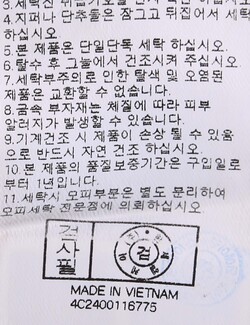 3.세탁전 취급표기를 반드시
4.지퍼나 단추들은 잠그고 뒤집어서 세탁
하십시오.
5.본 제품은 단일단독 세탁 하십시오.
6.탈수 후 그늘에서 건조시켜 주십시오.
7.세탁부주의로 인한 탈색 및 오염된
제품은 교환할 수 없습니다.
8.금속 부자재는 체질에 따라 피부
알러지가 발생할 수 있습니다.
9.기계건조 시 제품이 손상 될 수 있음
으로 반드시 자연 건조 하십시오.
10.본 제품의 품질보증기간은 구입일로
부터 1년입니다.
11.세탁시 모피부분은 별도 분리하여
모피세탁 전문점에 의뢰하십시오.
검사필
검
MADE IN VIETNAM
4C2400116775